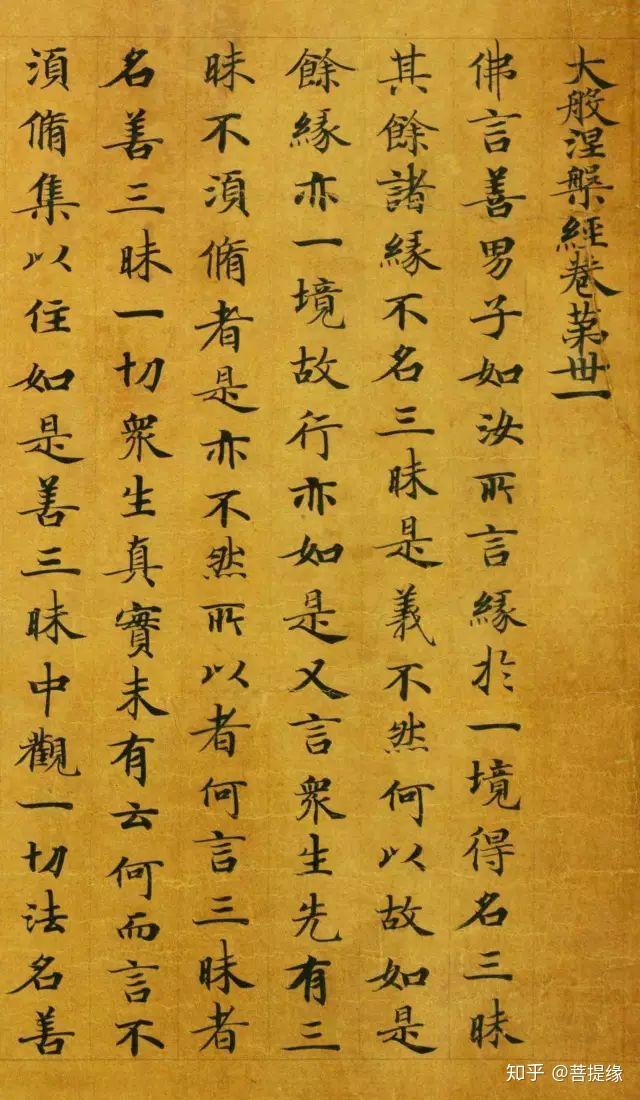 大般涅槃經卷第卅一
佛言善男子如汝所言緣於一境得名三昧
其餘諸緣不名三昧是義不然何以故如是
餘緣亦一境故行亦如是又言眾生先有三
昧不須脩者是亦不然所以者何言三昧者
名善三昧一切眾生真實未有云何而言不
須脩集以住如是善三昧中觀一切法名善
知乎 @菩提缘